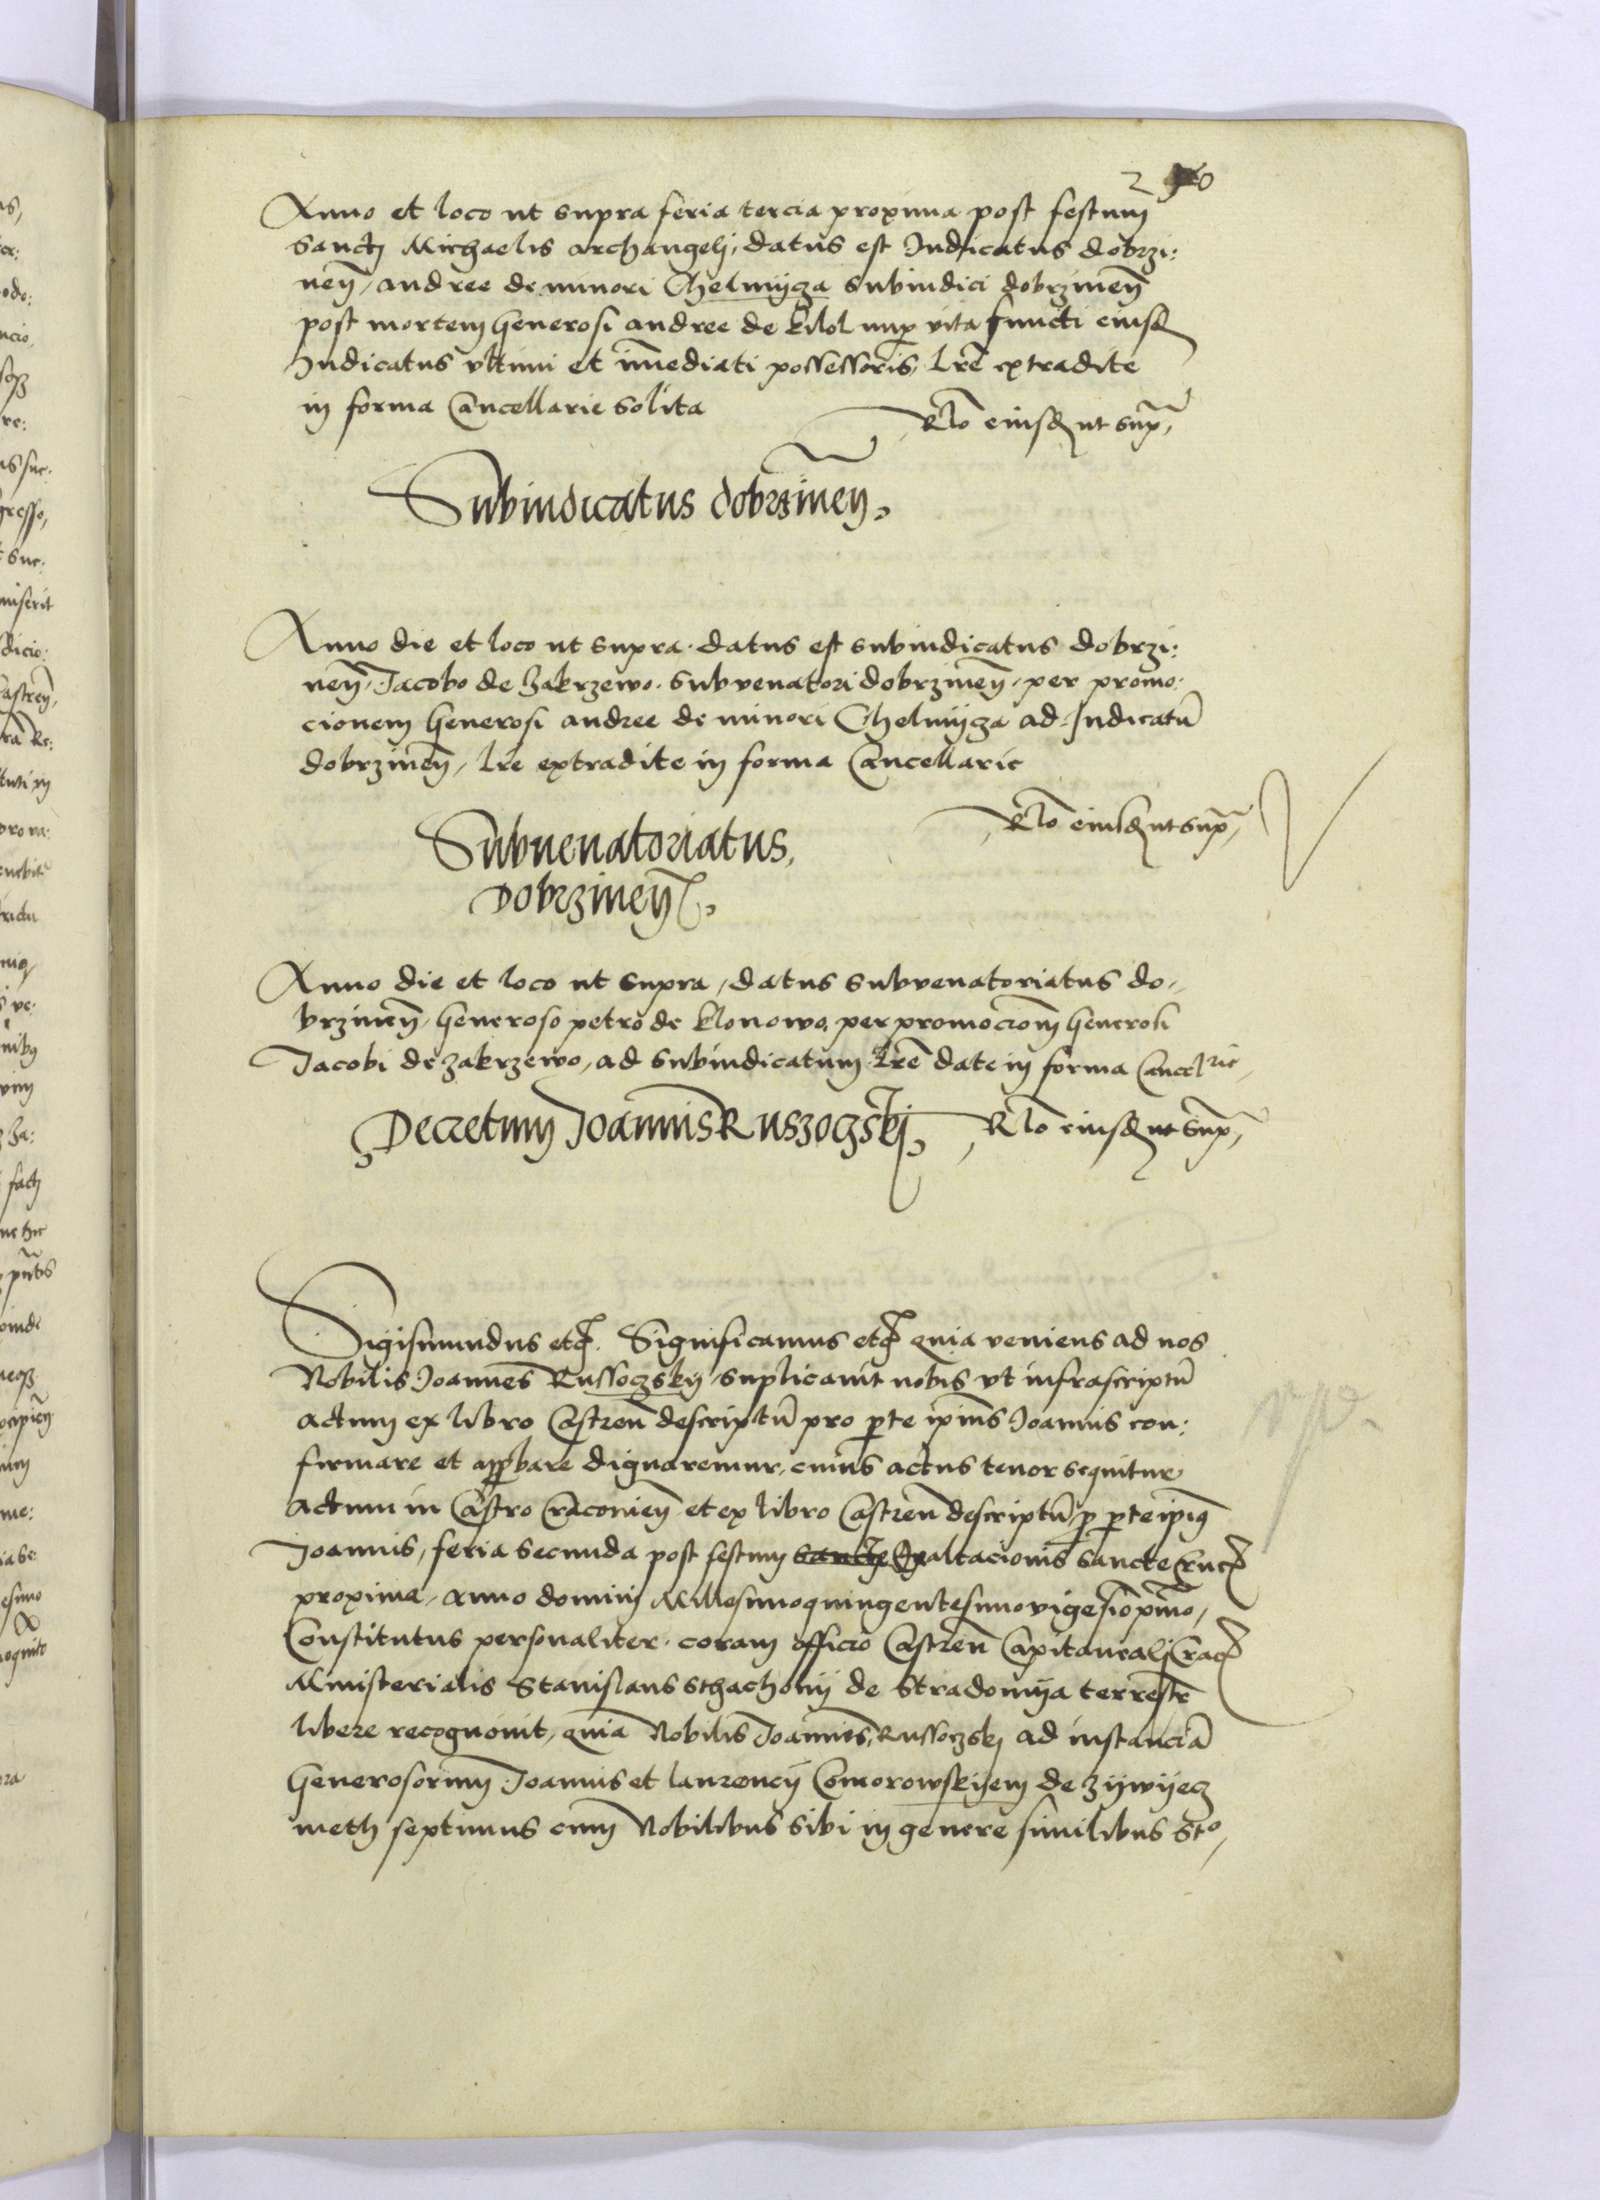 Anno et loco ut supra feria tercia proxima post festum
Sancti Michaelis archangeli, datus est Iudicatus dobrzi:
neñ, andree de minori Chelmycza Subiudici dobrzineñ
post mortem Generosi andree de kikol nup vita functi eiusd
Iudicatus ultimi et im̃ediati possessoris, Lr̃e extradite
in forma Cancellarie Solita
Rl̃o eiusd ut sup̃,
Subiudicatus dobrzineñ.
Anno die et loco ut supra. datus est subiudicatus dobrzi:
neñ, Jacobo de Zakrzewo. Subvenatori dobrzineñ, per promo:
cionem Generosi andree de minori Chelmycza ad Iudicatũ
dobrzineñ, Lr̃e extradite in forma Cancellarie
Rl̃o eiusd ut sup̃,
Subuenatoriatus,
Dobrzineñ.
Anno die et loco ut supra, datus subvenatoriatus do-
brzineñ, Generoso petro de Klonowo, per promocioñ Generosi
Jacobi de Zakrzewo, ad subiudicatum Lr̃e date in forma Cancelrie,
Decretum Joannis Ruszoczskj,
Rl̃o eiusd ut sup̃,
Sigismundus etc. Significamus etc quia veniens ad nos
Nobilis Joannes Russoczsky, suplicavit nobis ut infrascriptũ
actum ex libro Castreñ descriptũ pro pte ipius Joannis con:
firmare et approbare dignaremur, cuius actus tenor sequitur
actum in Castro Cracovieñ et ex libro Castreñ descriptũ p pte ipius
Joannis, feria secunda post festum Sancte Exaltacionis Sancte Cruc
proxima, anno domini Millesimoquingentesimovigesiõpmo,
Constitutus personaliter coram officio Castreñ Capitaneali Crac
Ministerialis Stanislaus Schachowy de Stradomya terrestr
libere recognovit, quia Nobilis Joannes, Russoczskj ad instanciã
Generosorum Joannis et laurencij Comorowskyem de Zywyecz
meth septimus cum Nobilibus sibi in genere similibus Sto,